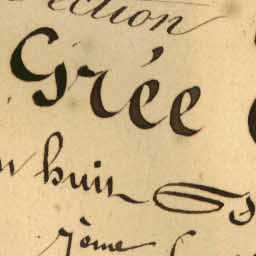 ection
Grée
huit
7ème